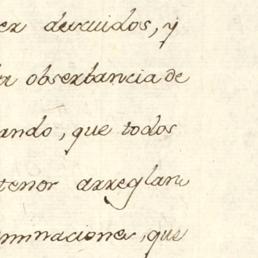 descuidos, y
obserbancia de
ando, que todos
tenor arreglan
minaciones, que